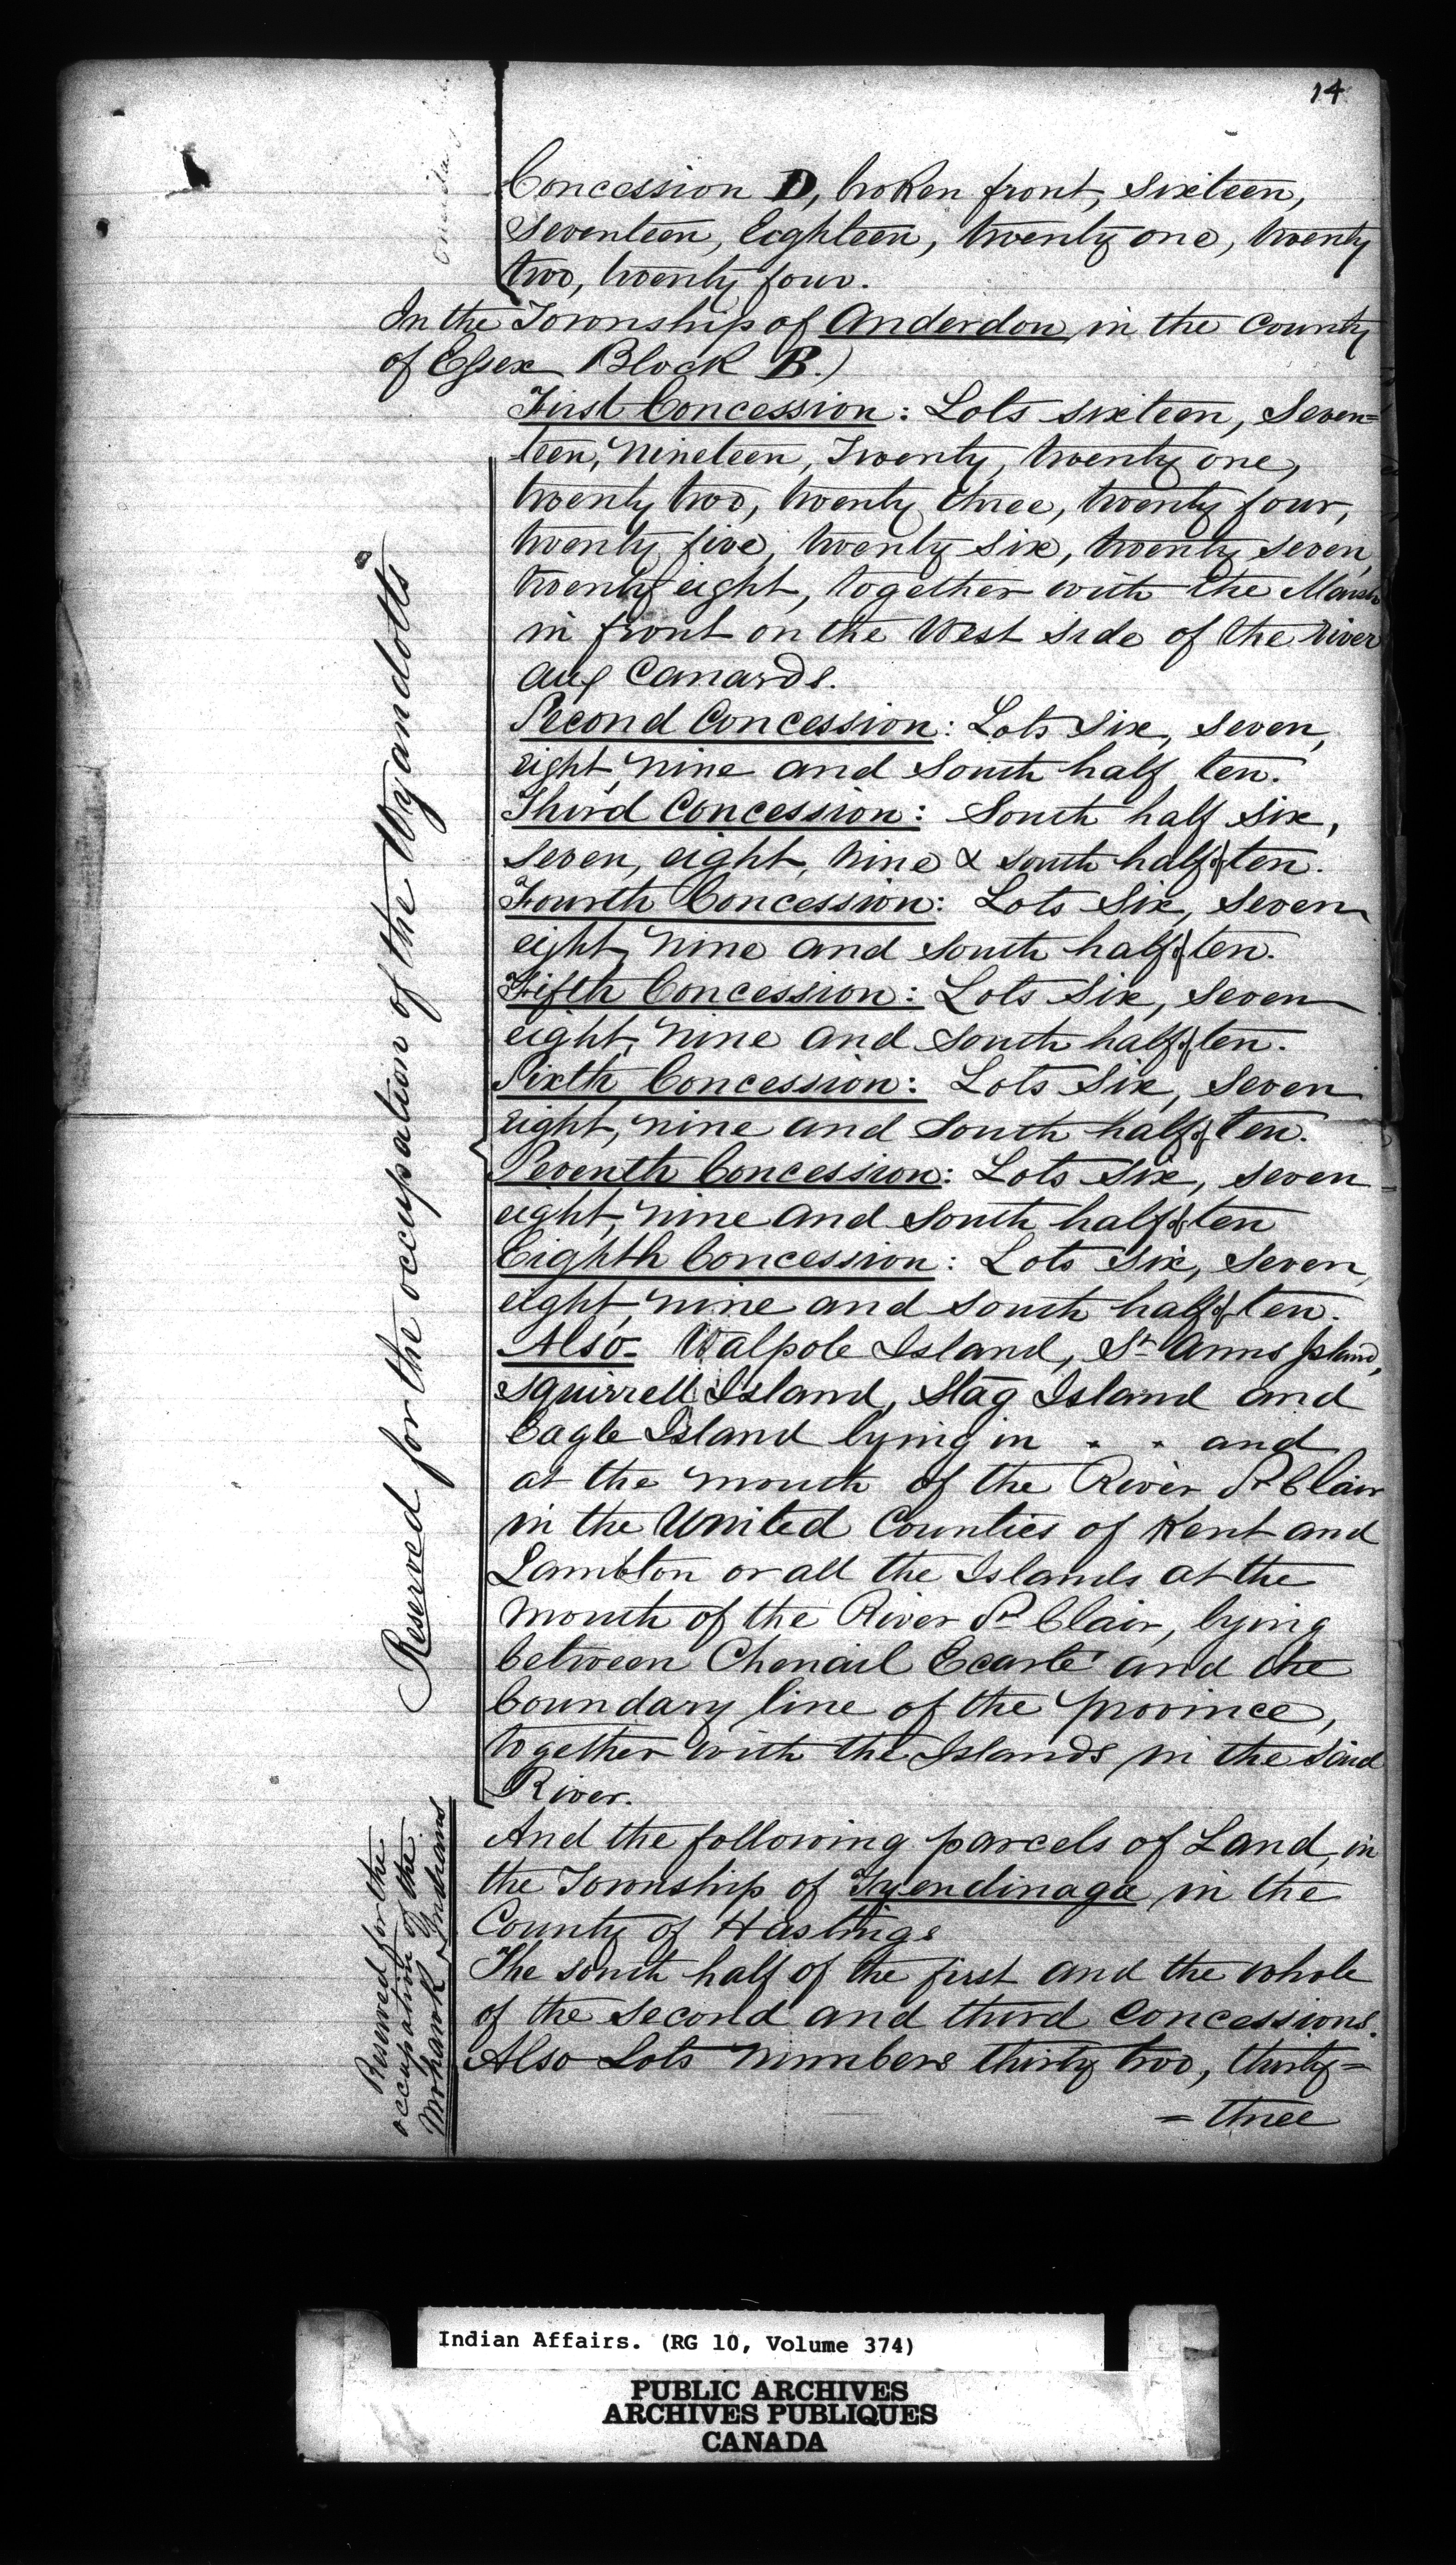 14
Concession D, broken front, sixteen,
seventeen, Eighteen, twenty one, twenty
two, twenty four.
In the Township of Anderdon in the County
of Essex Block B.)
First Concession: Lots sixteen, Seven=
teen, Nineteen, Twenty, twenty one,
twenty two, twenty three, twenty four,
twenty five, twenty six, twenty seven,
twenty eight, together with the Marsh
in front on the West side of the river
aux Canards.
Second Concession: Lots Six, Seven,
eight, nine and South half ten.
Third Concession: South half six,
seven, eight, nine & south half of ten.
Fourth Concession: Lots Six, Seven
eight, nine and south half of ten.
Fifth Concession: Lots Six, Seven
eight, nine and South half of ten.
Sixth Concession: Lots Six, Seven
eight, nine and South half of ten.
Seventh Concession: Lots six, seven
eight, nine and South half of ten
Eighth Concession: Lots Six, Seven,
eight, nine and South half of ten.
Also- Walpole Island, St Anns Island,
Squirrell Island, Stag Island and
Eagle Island lying in " " and
at the mouth of the River St Clair
in the United Counties of Kent and
Lambton or all the Islands at the
mouth of the River St Clair, lying
between Chenail Ecarté and the
boundary line of the Province,
together with the Islands in the said
River.
And the following parcels of Land, in
the Township of Tyendinaga in the
County of Hastings
The south half of the first and the whole
of the Second and third Concessions.
Also Lots Numbers thirty two, thirty=
= three
Reserved for the occupation of the Wyandotts
Reserved for the
occupation of the
Mohawk Indians
Indian Affairs. (RG 10, Volume 374)
PUBLIC ARCHIVES
ARCHIVES PUBLIQUES
CANADA